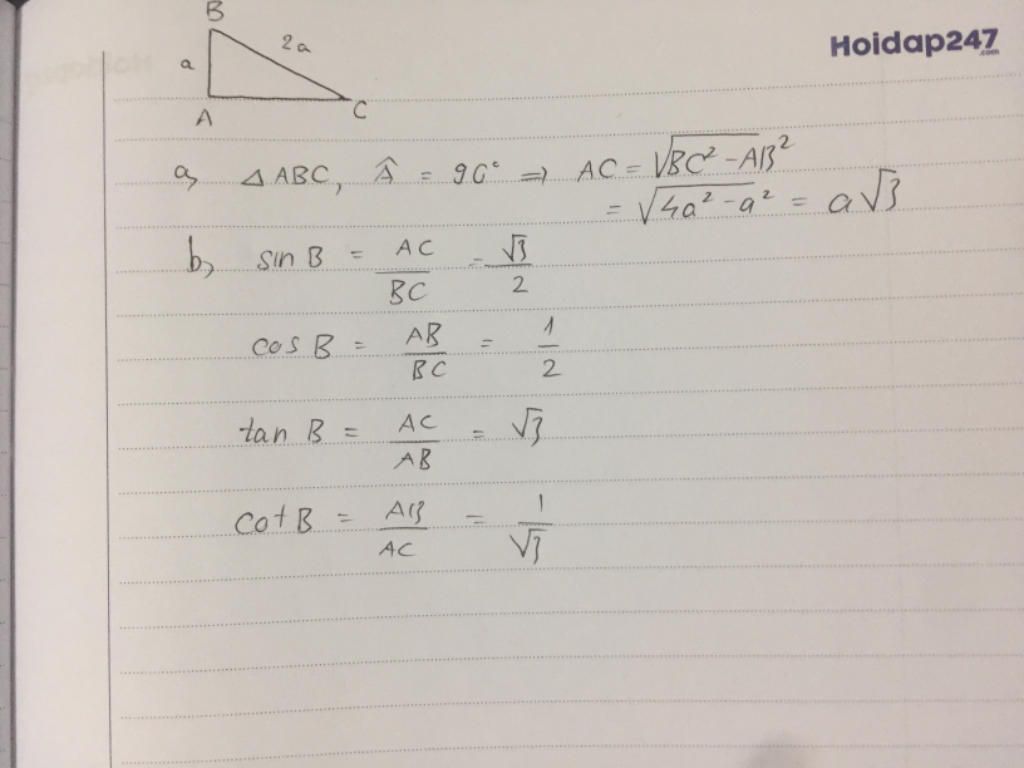 Hoidap247
.com
B
a
2a
A
C
a, △ABC, Â = 90° => AC = √BC² - AB²
= √4a² - a² = a√3
b, sin B = AC/BC = √3/2
cos B = AB/BC = 1/2
tan B = AC/AB = √3
cot B = AB/AC = 1/√3